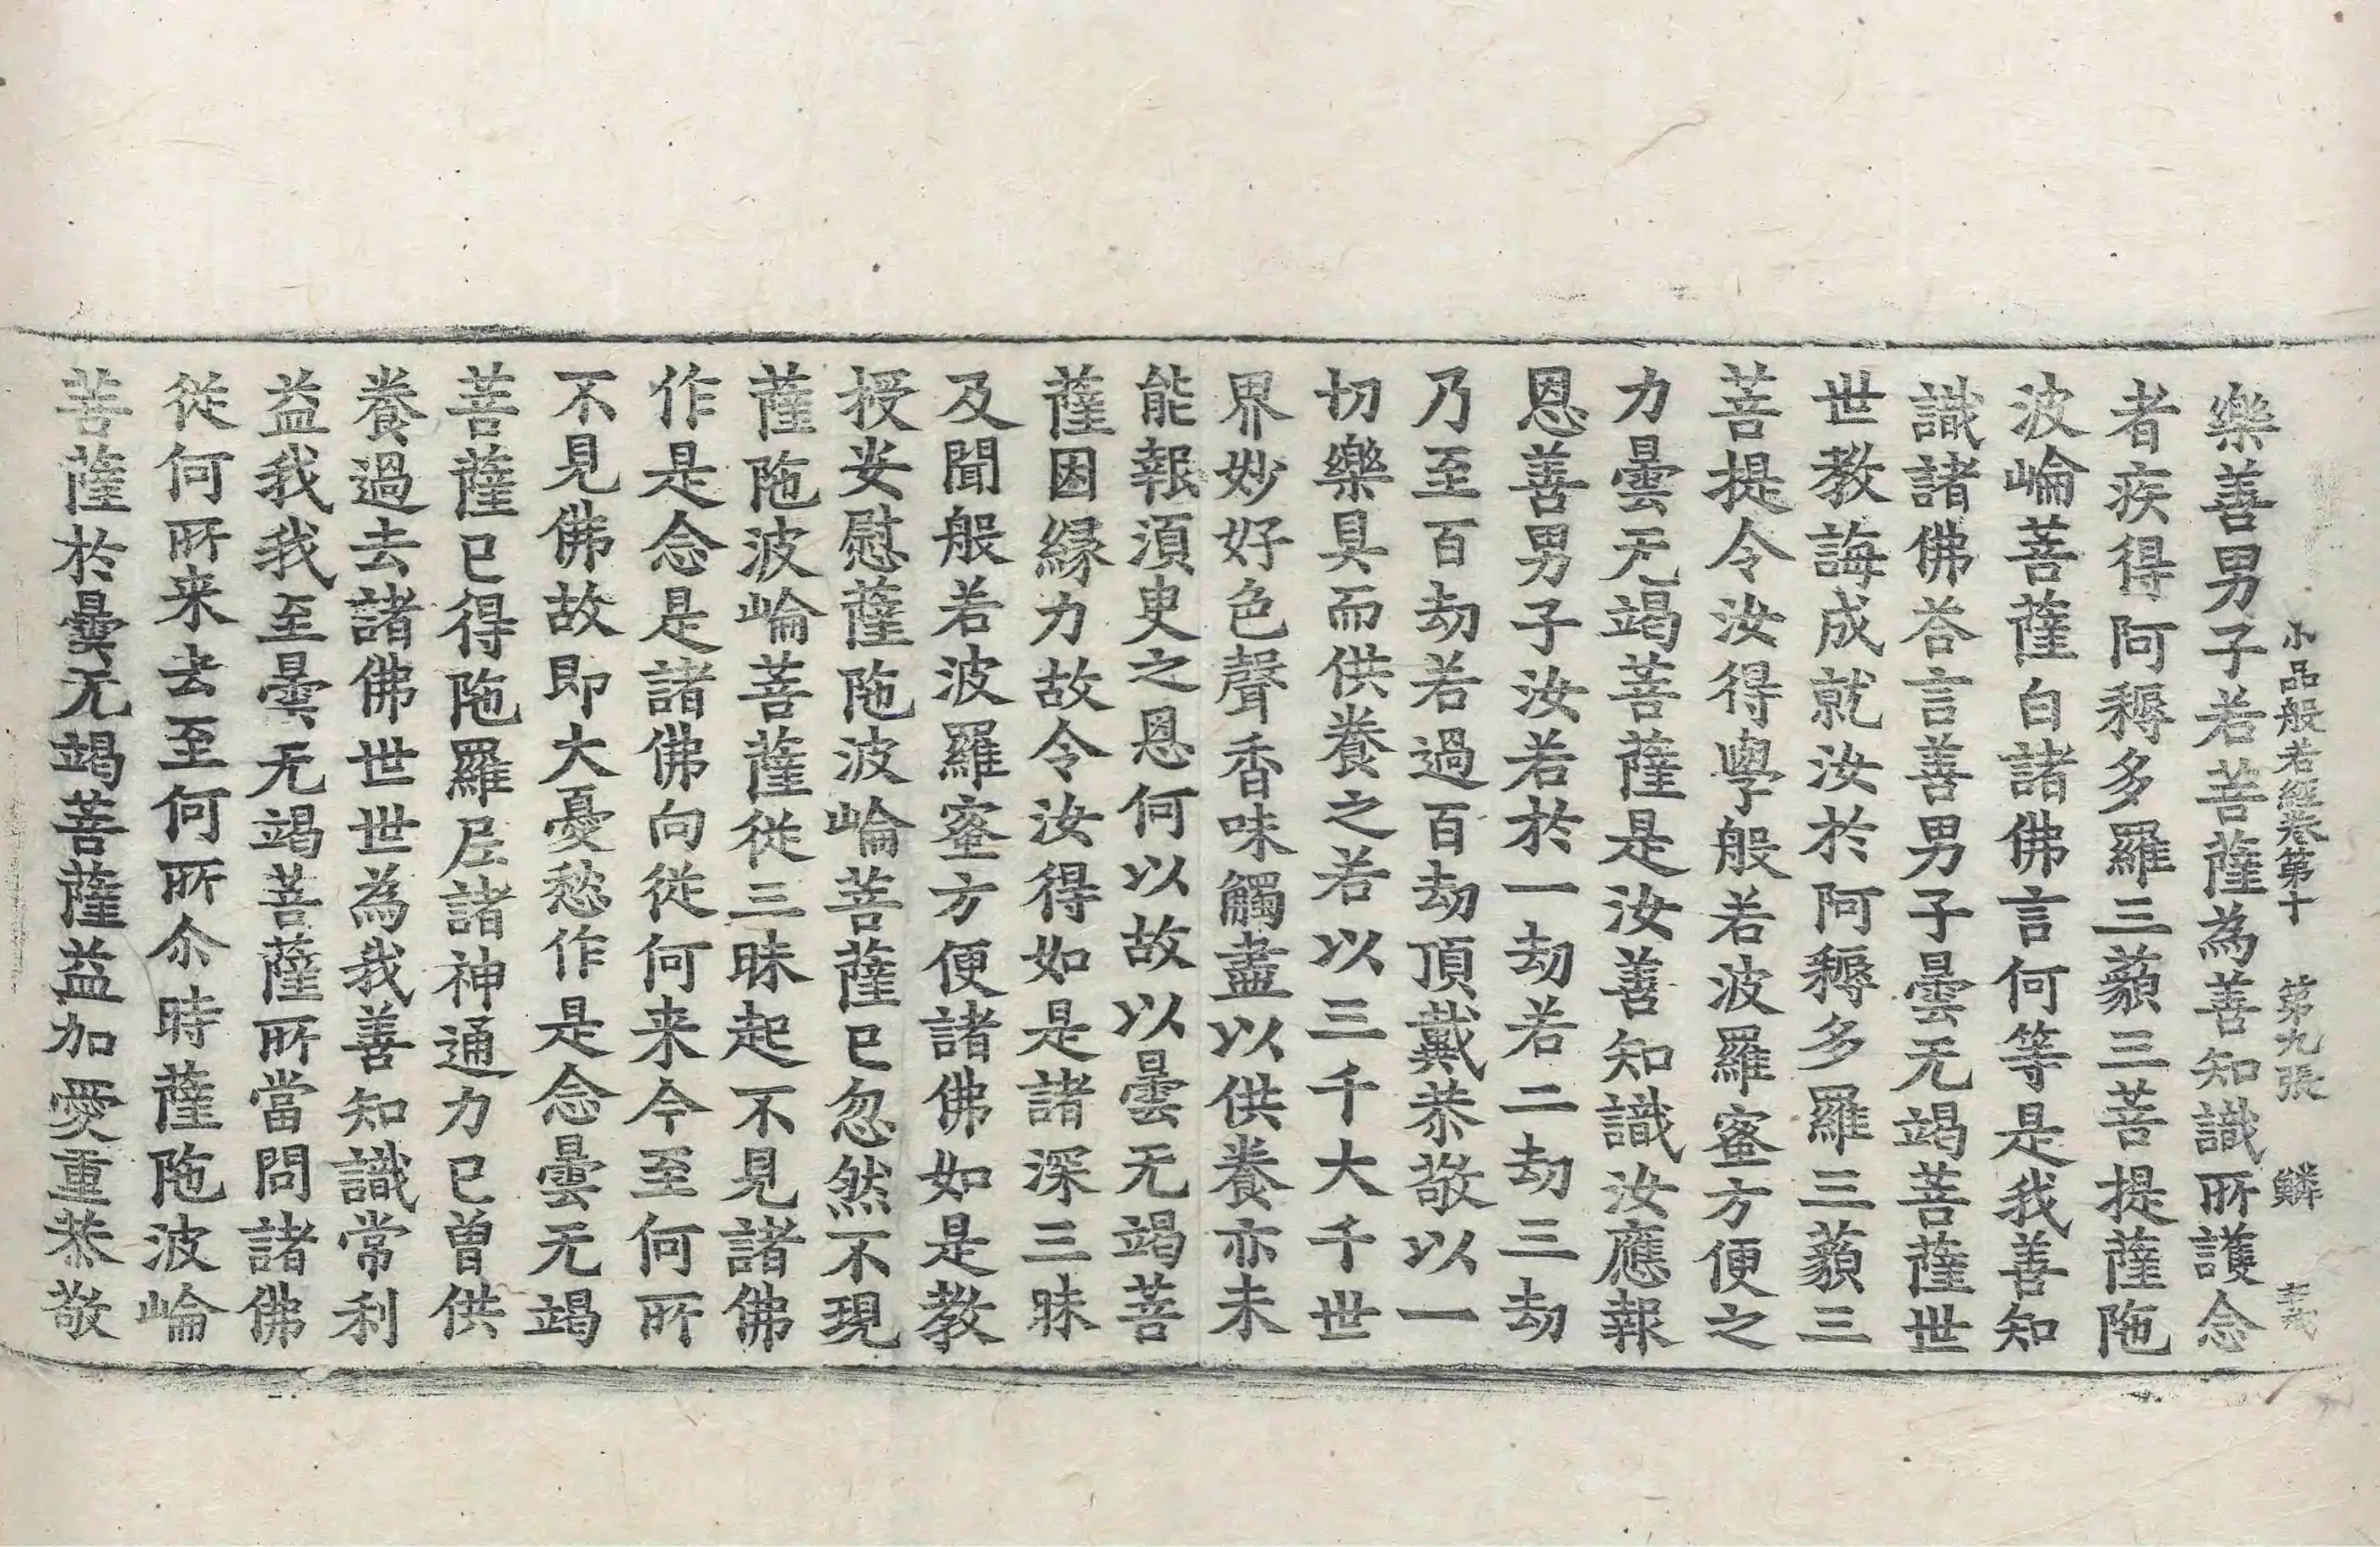 小品般若經卷第十 第九張 鱗
樂善男子若菩薩為善知識所護念
者疾得阿耨多羅三藐三菩提薩陁
波崘菩薩白諸佛言何等是我善知
識諸佛荅言善男子曇无竭菩薩世
世教誨成就汝於阿耨多羅三藐三
菩提令汝得學般若波羅蜜方便之
力曇无竭菩薩是汝善知識汝應報
恩善男子汝若於一劫若二劫三劫
乃至百劫若過百劫頂戴恭敬以一
切樂具而供養之若以三千大千世
界妙好色聲香味觸盡以供養亦未
能報須臾之恩何以故以曇无竭菩
薩因縁力故令汝得如是諸深三昧
及聞般若波羅蜜方便諸佛如是教
授安慰薩陁波崘菩薩已忽然不現
薩陁波崘菩薩從三昧起不見諸佛
作是念是諸佛向從何来今至何所
不見佛故即大憂愁作是念曇无竭
菩薩已得陁羅尼諸神通力已曽供
養過去諸佛世世為我善知識常利
益我我至曇无竭菩薩所當問諸佛
從何所来去至何所尒時薩陁波崘
菩薩於曇无竭菩薩益加愛重恭敬